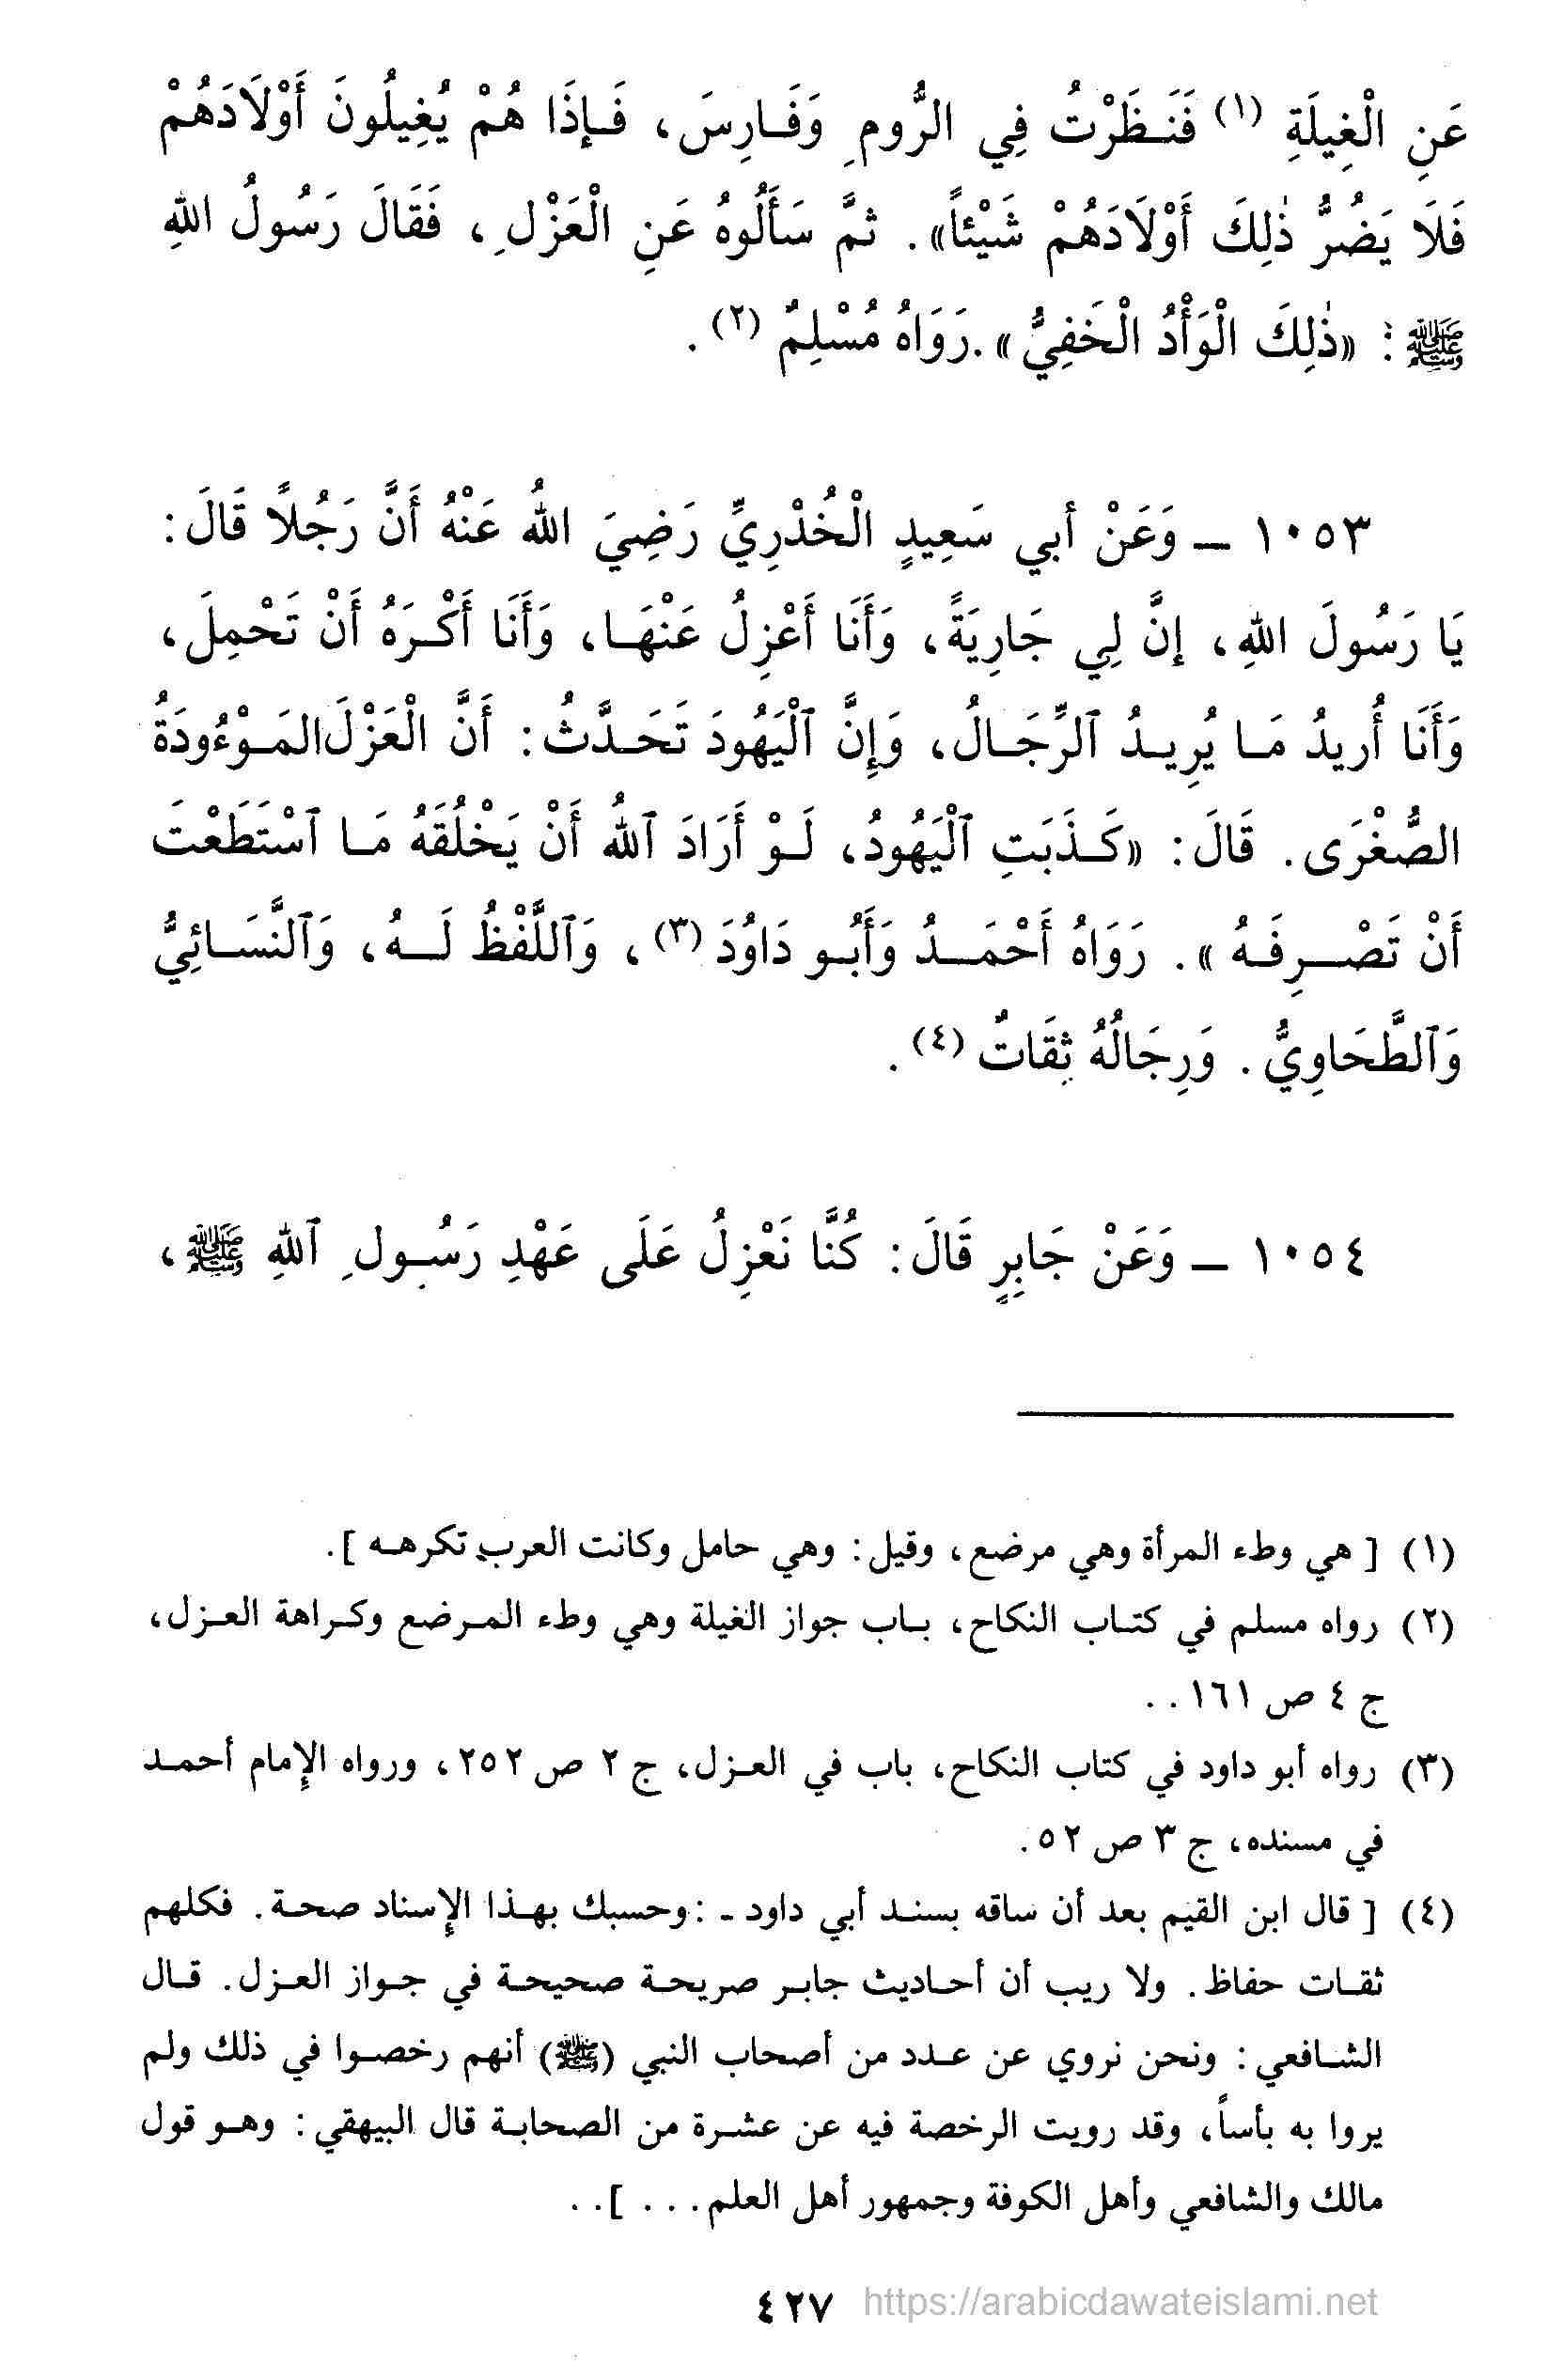 عَنِ الْغِيلَةِ (١) فَنَظَرْتُ فِي الرُّومِ وَفَارِسَ، فَإِذَا هُمْ يُغِيلُونَ أَوْلَادَهُمْ
فَلَا يَضُرُّ ذٰلِكَ أَوْلَادَهُمْ شَيْئاً». ثمَّ سَأَلُوهُ عَنِ الْعَزْلِ، فَقَالَ رَسُولُ اللهِ
ﷺ: «ذٰلِكَ الْوَأْدُ الْخَفِيُّ». رَوَاهُ مُسْلِمٌ (٢).
١٠٥٣ ـ وَعَنْ أبي سَعِيدٍ الْخُدْرِيِّ رَضِيَ اللهُ عَنْهُ أَنَّ رَجُلاً قَالَ:
يَا رَسُولَ اللهِ، إنَّ لِي جَارِيَةً، وَأَنَا أَعْزِلُ عَنْهَا، وَأَنَا أَكْرَهُ أَنْ تَحْمِلَ،
وَأَنَا أُريدُ مَا يُرِيدُ ٱلرِّجَالُ، وَإِنَّ ٱلْيَهُودَ تَحَدَّثُ: أَنَّ الْعَزْلَ المَوْءُودَةُ
الصُّغْرَى. قَالَ: «كَذَبَتِ ٱلْيَهُودُ، لَوْ أَرَادَ ٱللهُ أَنْ يَخْلُقَهُ مَا ٱسْتَطَعْتَ
أَنْ تَصْرِفَهُ». رَوَاهُ أَحْمَدُ وَأَبُو دَاوُدَ (٣)، وَٱللَّفْظُ لَهُ، وَٱلنَّسَائِيُّ
وَٱلطَّحَاوِيُّ. وَرِجَالُهُ ثِقَاتٌ (٤).
١٠٥٤ ـ وَعَنْ جَابِرٍ قَالَ: كُنَّا نَعْزِلُ عَلَى عَهْدِ رَسُولِ ٱللهِ ﷺ،
(١) [ هي وطء المرأة وهي مرضع، وقيل: وهي حامل وكانت العرب تكرهه ].
(٢) رواه مسلم في كتاب النكاح، باب جواز الغيلة وهي وطء المرضع وكراهة العزل،
ج ٤ ص ١٦١..
(٣) رواه أبو داود في كتاب النكاح، باب في العزل، ج ٢ ص ٢٥٢، ورواه الإمام أحمد
في مسنده، ج ٣ ص ٥٢.
(٤) [ قال ابن القيم بعد أن ساقه بسند أبي داود ـ: وحسبك بهذا الإسناد صحة. فكلهم
ثقات حفاظ. ولا ريب أن أحاديث جابر صريحة صحيحة في جواز العزل. قال
الشافعي: ونحن نروي عن عدد من أصحاب النبي (ﷺ) أنهم رخصوا في ذلك ولم
يروا به بأساً، وقد رويت الرخصة فيه عن عشرة من الصحابة قال البيهقي: وهو قول
مالك والشافعي وأهل الكوفة وجمهور أهل العلم... ]..
٤٢٧ https://arabicdawateislami.net